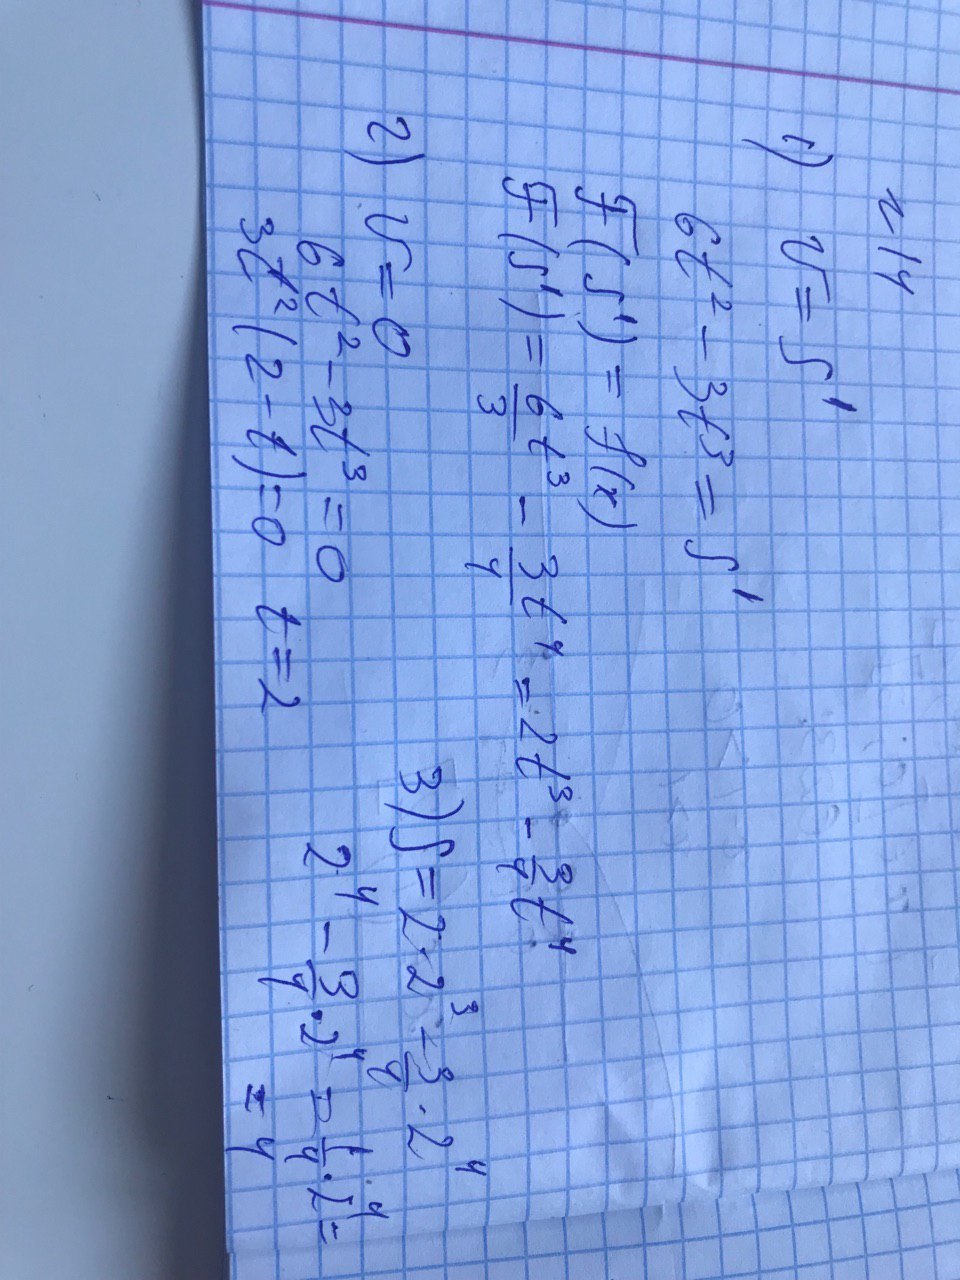 n 14
1) V = S'
6t² - 3t³ = S'
F(S') = f(x)
F(S') = 6/3 t³ - 3/4 t⁴ = 2t³ - 3/4 t⁴
2) V = 0
6t² - 3t³ = 0
3t²(2 - t) = 0 t = 2
3) S = 2 · 2³ - 3/4 · 2⁴
2⁴ - 3/4 · 2⁴ = 1/4 · 2⁴ =
= 4